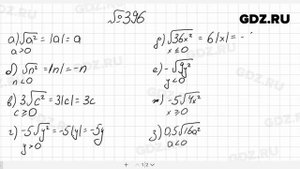 GDZ.RU
№396
а) √a² = |a| = a
a>0
б) √n² = |n| = -n
n<0
в) 3√c² = 3|c| = 3c
c≥0
г) -5√y² = -5|y| = -5y
y>0
д) √36x² = 6|x| = -
x≤0
е) -√9y²
y<0
ж) -5√4x²
x≥0
з) 0,5√16a²
a<0
1/2
GDZ.RU